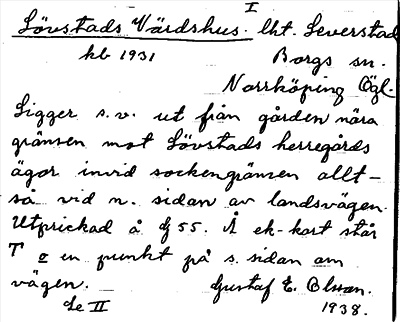 I
Lövstads Värdshus. lht. Leverstad
kb 1931 Borgs sn.
Norrköping Ögl.
Ligger s.v. ut från gården nära
gränsen mot Lövstads herregårds
ägor invid sockengränsen allt-
så vid n. sidan av landsvägen.
Utprickad å dj 55. Å ek-kart står
T o en punkt på s. sidan om
vägen. Gustaf E. Olsson.
Se II 1938.